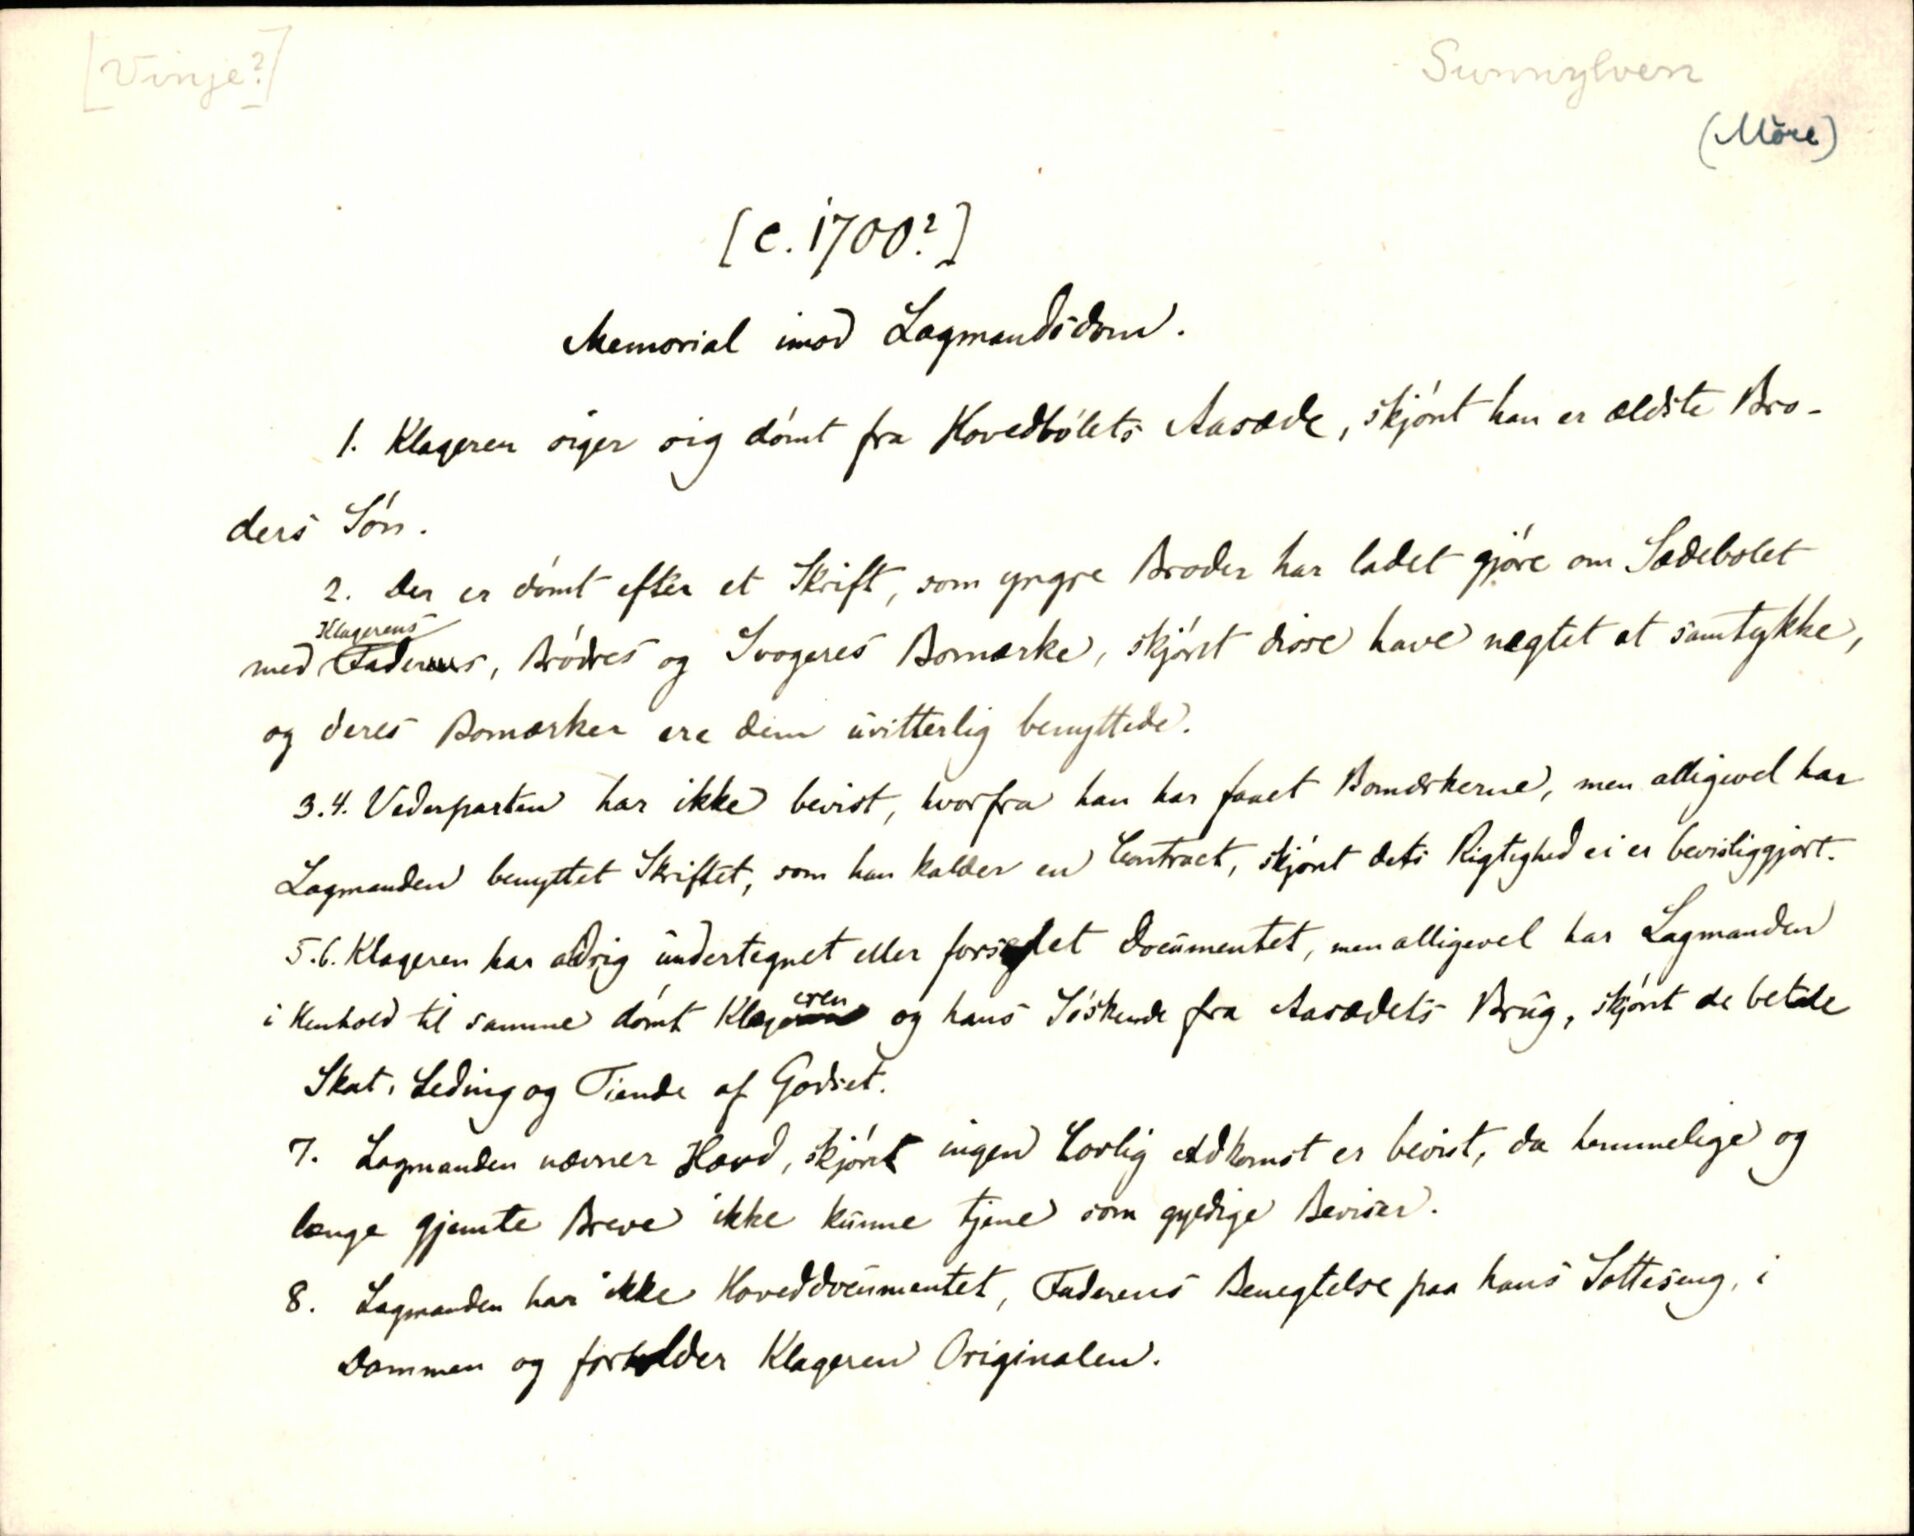 [Vinje?]
Sunnylven
(Møre)
[c. 1700?]
Memorial imod Lagmandsdom.
1. Klageren siger sig dómt fra Hovedbólets Aasæde, skjónt han er ældste Bro-
ders Són.
2. Der er dómt efter et Skrift, som yngre Broder har ladet gjóre om Sædebolet
med Klagerens Faders, Bródres og Svogeres Bomærke, skjónt disse have nægtet at samtykke,
og deres Bomærker ere dem uvitterlig benyttede.
3.4. Vederparten har ikke bevist, hvorfra han har faaet Bomærkerne, men alligevel har
Lagmanden benyttet Skriftet, som han kalder en Contract, skjónt dets Rigtighed ei er bevisliggjort.
5.6. Klageren har aldrig undertegnet eller forseglet Documentet, men alligevel har Lagmanden
i Henhold til samme dómt Klageren og hans Sóskende fra Aasædets Brug, skjónt de betale
Skat, Leding og Tiende af Godset.
7. Lagmanden nævner Hævd, skjónt ingen Lovlig Adkomst er bevist, da hemmelige og
længe gjemte Breve ikke kunne tjene som gyldige Beviser.
8. Lagmanden har ikke Hoveddocumentet, Faderens Benegtelse paa hans Sotteseng, i
Dommen og forholder Klageren Originalen.